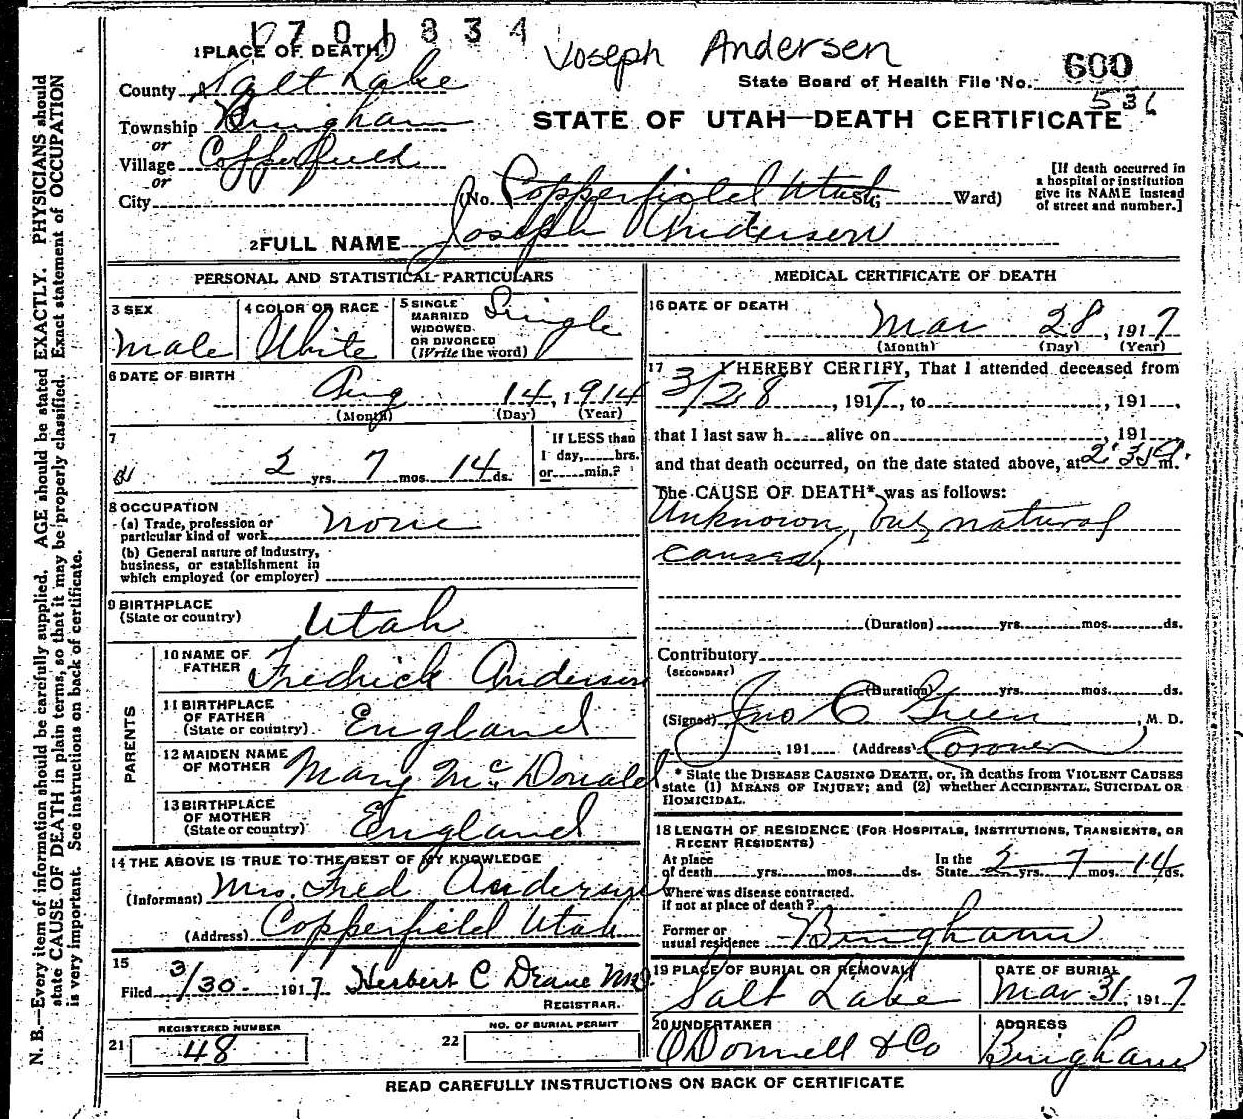 1701834
Joseph Andersen
1 PLACE OF DEATH
600
State Board of Health File No.
536
County Salt Lake
Township Bingham
or
Village Copperfield
or
City
STATE OF UTAH—DEATH CERTIFICATE
(No. Copperfield Utah St; Ward)
[If death occurred in
a hospital or institution
give its NAME instead
of street and number.]
2 FULL NAME Joseph Anderson
PERSONAL AND STATISTICAL PARTICULARS
3 SEX
Male
4 COLOR OR RACE
White
5 SINGLE
MARRIED
WIDOWED
OR DIVORCED
(Write the word)
Single
6 DATE OF BIRTH
Aug 14, 1914
(Month) (Day) (Year)
7
2 yrs. 7 mos. 14 ds.
If LESS than
1 day, hrs.
or min.?
8 OCCUPATION
(a) Trade, profession or
particular kind of work None
(b) General nature of industry,
business, or establishment in
which employed (or employer)
9 BIRTHPLACE
(State or country) Utah
PARENTS
10 NAME OF
FATHER Fredrick Anderson
11 BIRTHPLACE
OF FATHER
(State or country) England
12 MAIDEN NAME
OF MOTHER Mary McDonald
13 BIRTHPLACE
OF MOTHER
(State or country) England
14 THE ABOVE IS TRUE TO THE BEST OF MY KNOWLEDGE
(Informant) Mrs. Fred Anderson
(Address) Copperfield Utah
15
Filed 3/30 1917 Herbert C Deane MD.
REGISTRAR.
REGISTERED NUMBER
21 48
NO. OF BURIAL PERMIT
22
MEDICAL CERTIFICATE OF DEATH
16 DATE OF DEATH
Mar 28, 1917
(Month) (Day) (Year)
17 I HEREBY CERTIFY, That I attended deceased from
3/28, 1917, to , 191 ,
that I last saw h alive on , 191
and that death occurred, on the date stated above, at m.
The CAUSE OF DEATH* was as follows:
Unknown, but natural
causes,
(Duration) yrs. mos. ds.
Contributory
(SECONDARY)
(Duration) yrs. mos. ds.
(Signed) Jno C Green, M. D.
, 191 (Address) Coroner
* State the DISEASE CAUSING DEATH, or, in deaths from VIOLENT CAUSES
state (1) MEANS OF INJURY; and (2) whether ACCIDENTAL, SUICIDAL OR
HOMICIDAL.
18 LENGTH OF RESIDENCE (FOR HOSPITALS, INSTITUTIONS, TRANSIENTS, OR
RECENT RESIDENTS)
At place
of death yrs. mos. ds.
In the
State 2 yrs. 7 mos. 14 ds.
Where was disease contracted.
if not at place of death?
Former or
usual residence Bingham
19 PLACE OF BURIAL OR REMOVAL
Salt Lake
DATE OF BURIAL
Mar 31, 1917
20 UNDERTAKER
O'Donnell & Co
ADDRESS
Bingham
READ CAREFULLY INSTRUCTIONS ON BACK OF CERTIFICATE
N. B.—Every item of information should be carefully supplied. AGE should be stated EXACTLY. PHYSICIANS should
state CAUSE OF DEATH in plain terms, so that it may be properly classified. Exact statement of OCCUPATION
is very important. See instructions on back of certificate.